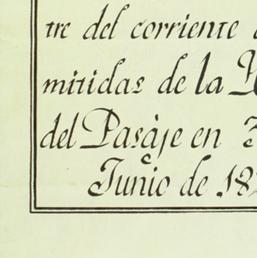 tre del corriente
mitidas de la
del Pasàje en
Junio de 18